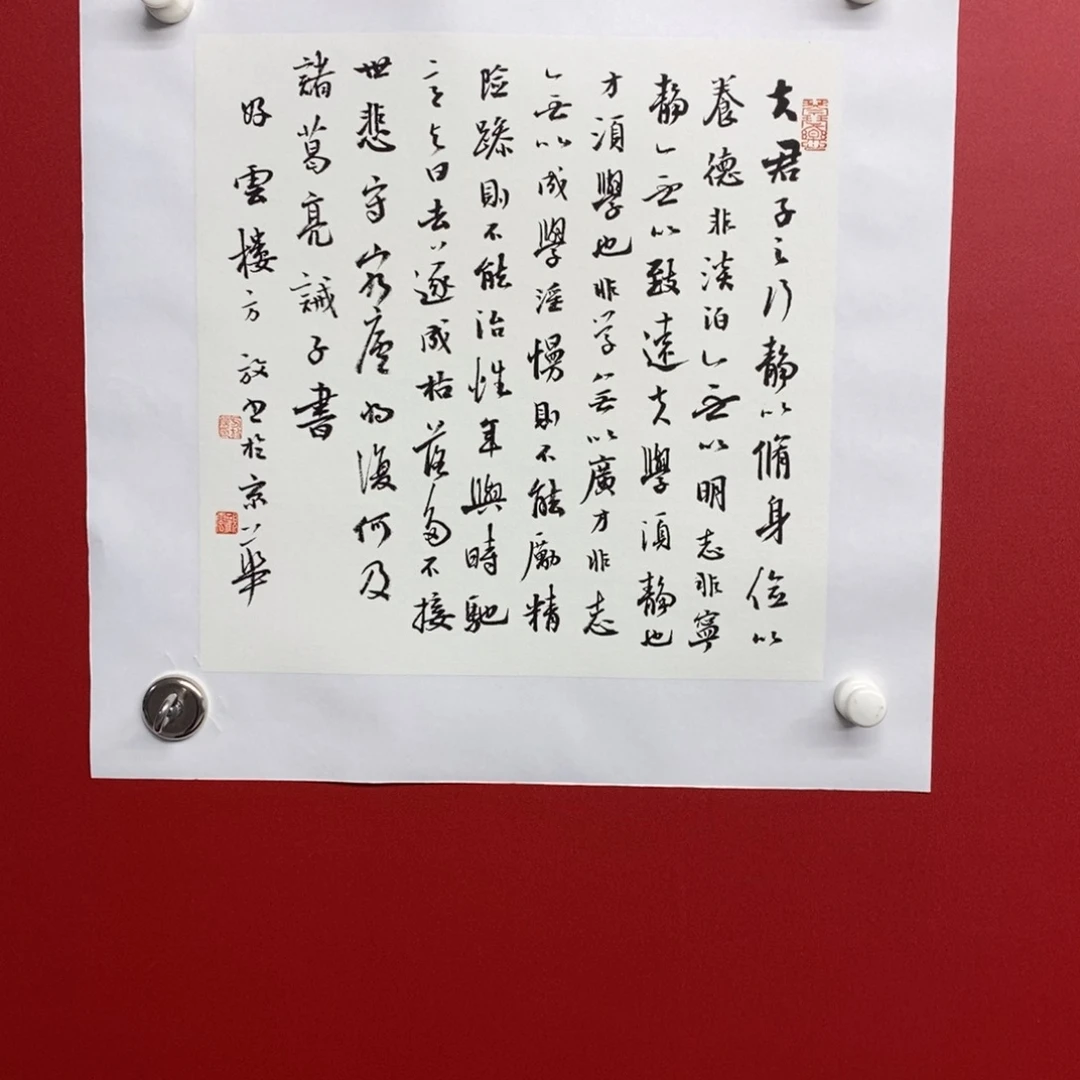 夫君子之行静以脩身儉以
養德非淡泊无以明志非寧
静无以致遠夫學須静也
才須學也非学無以廣才非志
無以成學淫慢則不能勵精
险躁則不能治性年與時馳
意与日去遂成枯落多不接
世悲守窮廬將復何及
諸葛亮誡子書
好雲樓方放書於京華